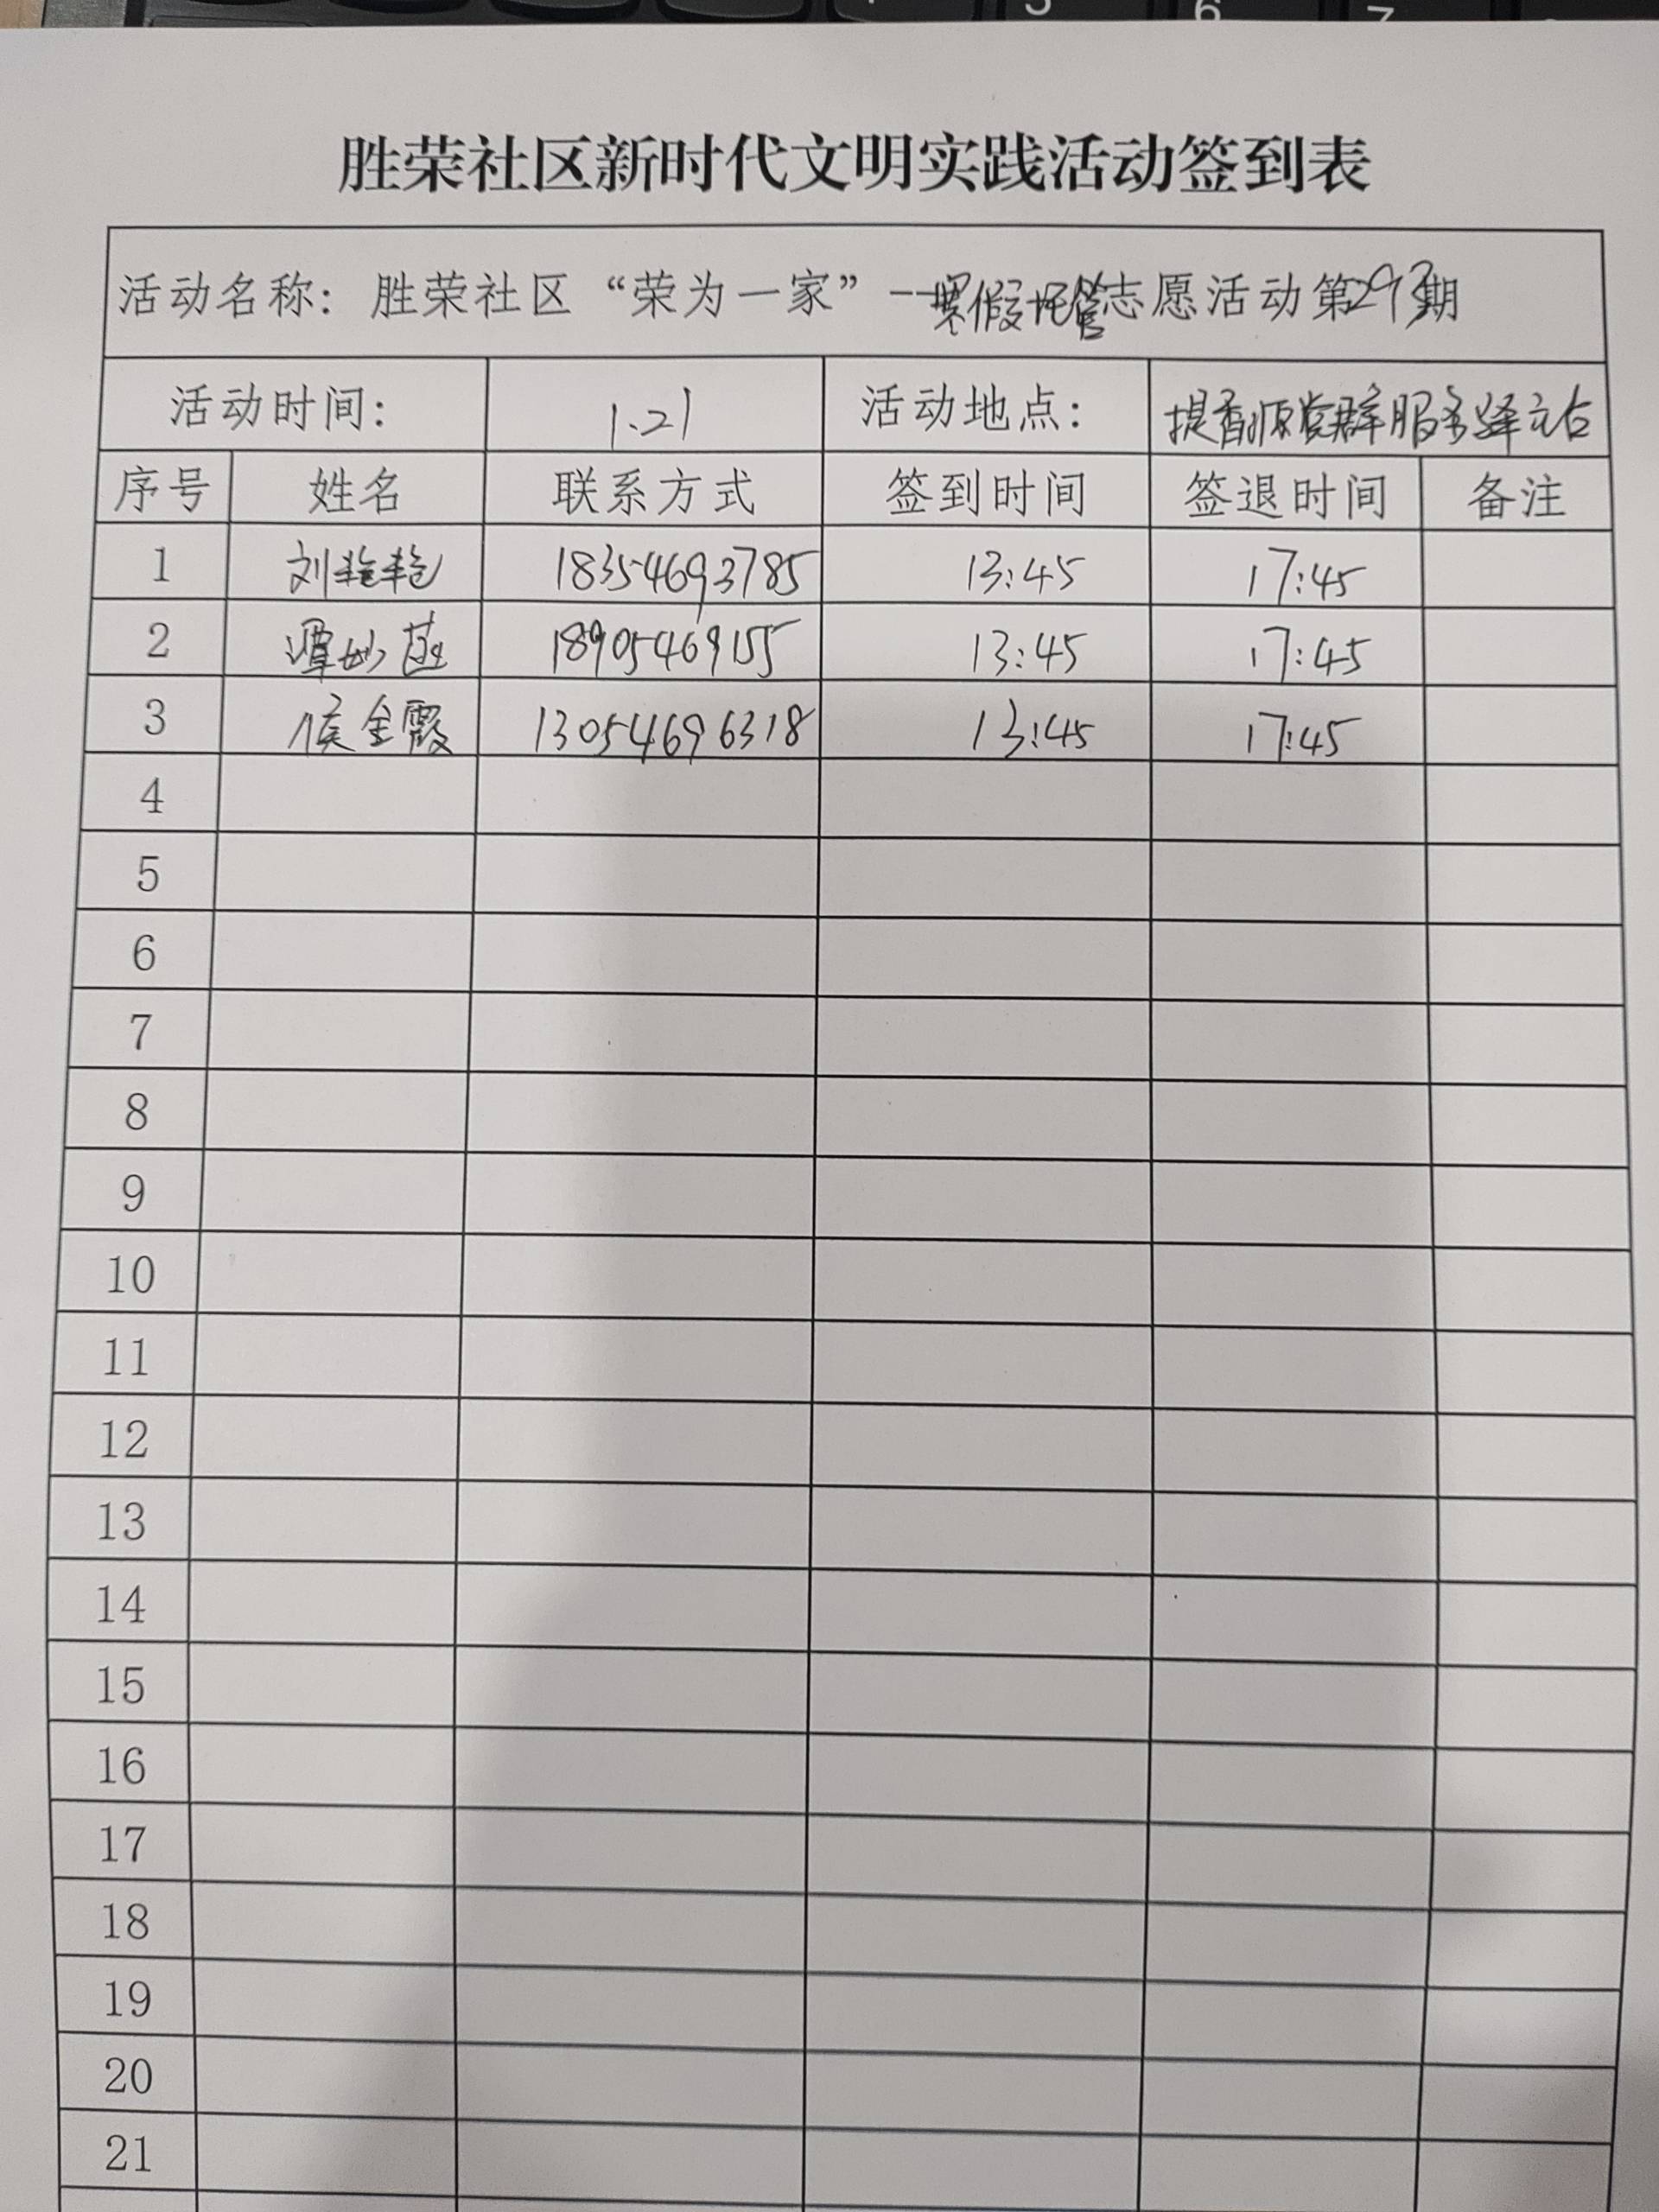 胜荣社区新时代文明实践活动签到表
活动名称：胜荣社区“荣为一家”--寒假托管志愿活动第293期
活动时间： 1.21 活动地点： 提香源党群服务驿站
序号 姓名 联系方式 签到时间 签退时间 备注
1 刘艳艳 18354693785 13:45 17:45
2 谭妙菡 18905469155 13:45 17:45
3 侯金霞 13054696318 13:45 17:45
4
5
6
7
8
9
10
11
12
13
14
15
16
17
18
19
20
21